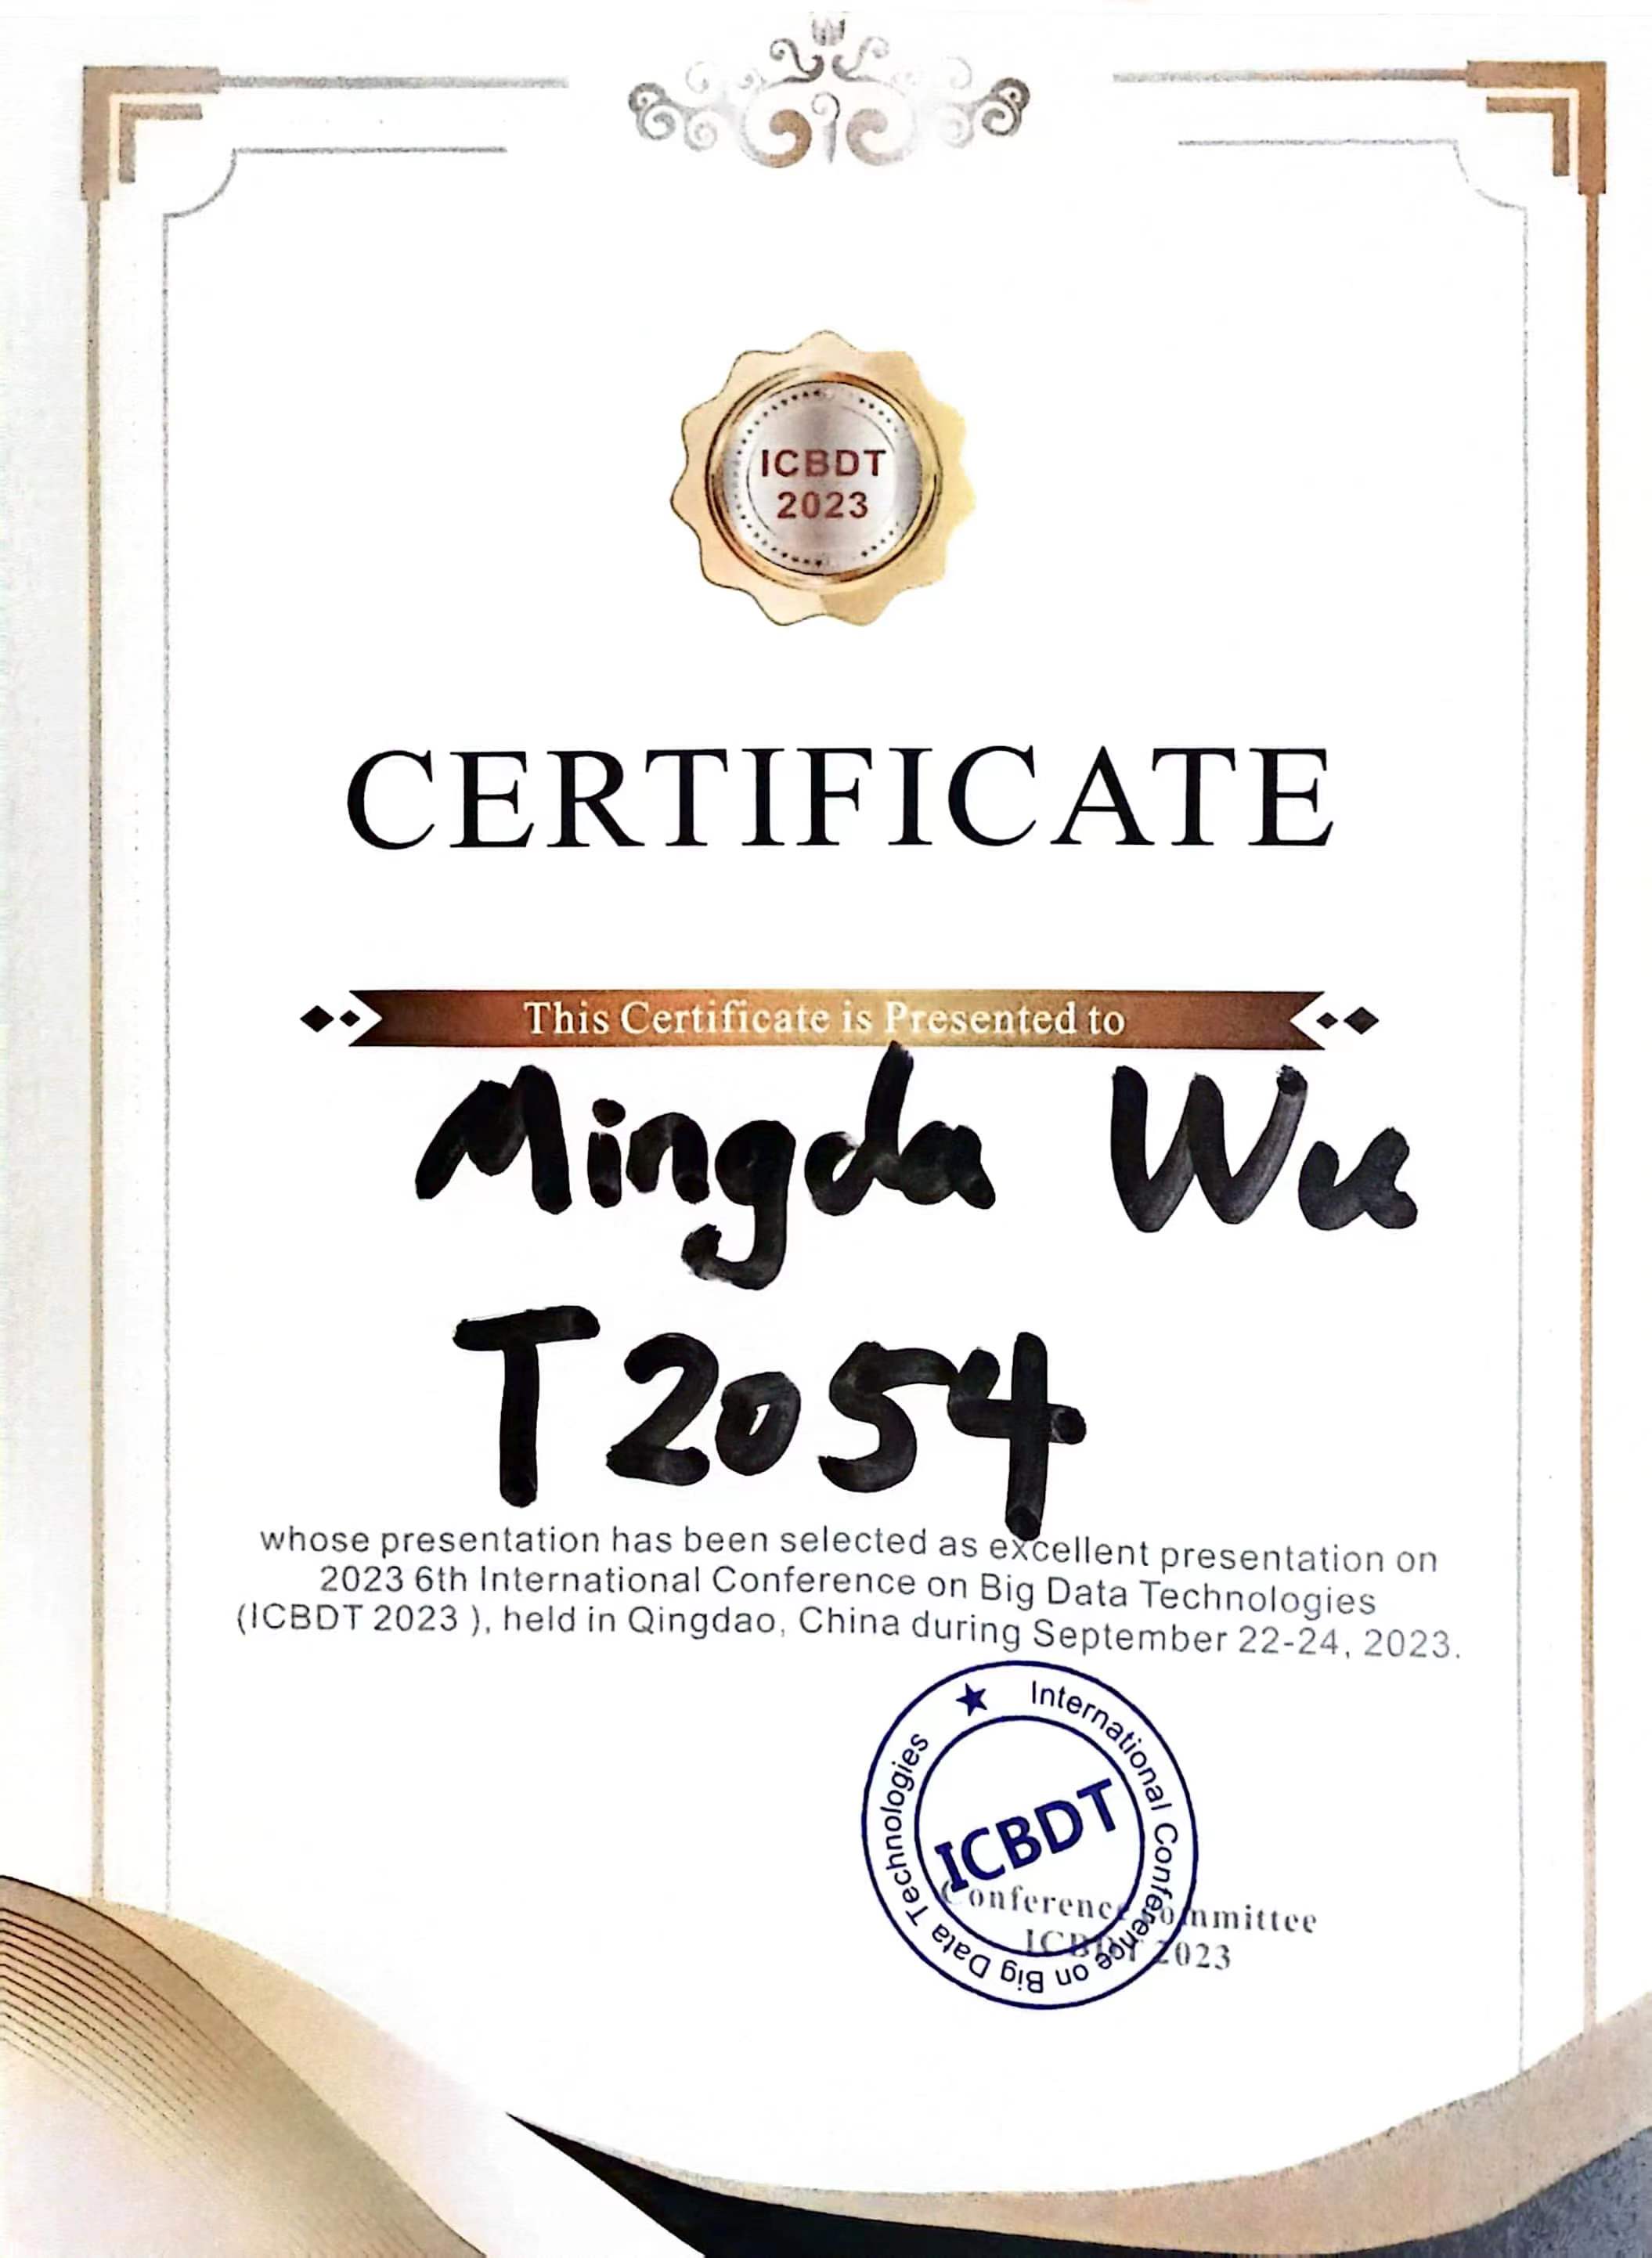 ICBDT
2023
CERTIFICATE
This Certificate is Presented to
Mingda Wu
T2054
whose presentation has been selected as excellent presentation on
2023 6th International Conference on Big Data Technologies
(ICBDT 2023 ), held in Qingdao, China during September 22-24, 2023.
International Conference on Big Data Technologies
ICBDT
Conference Committee
ICBDT 2023